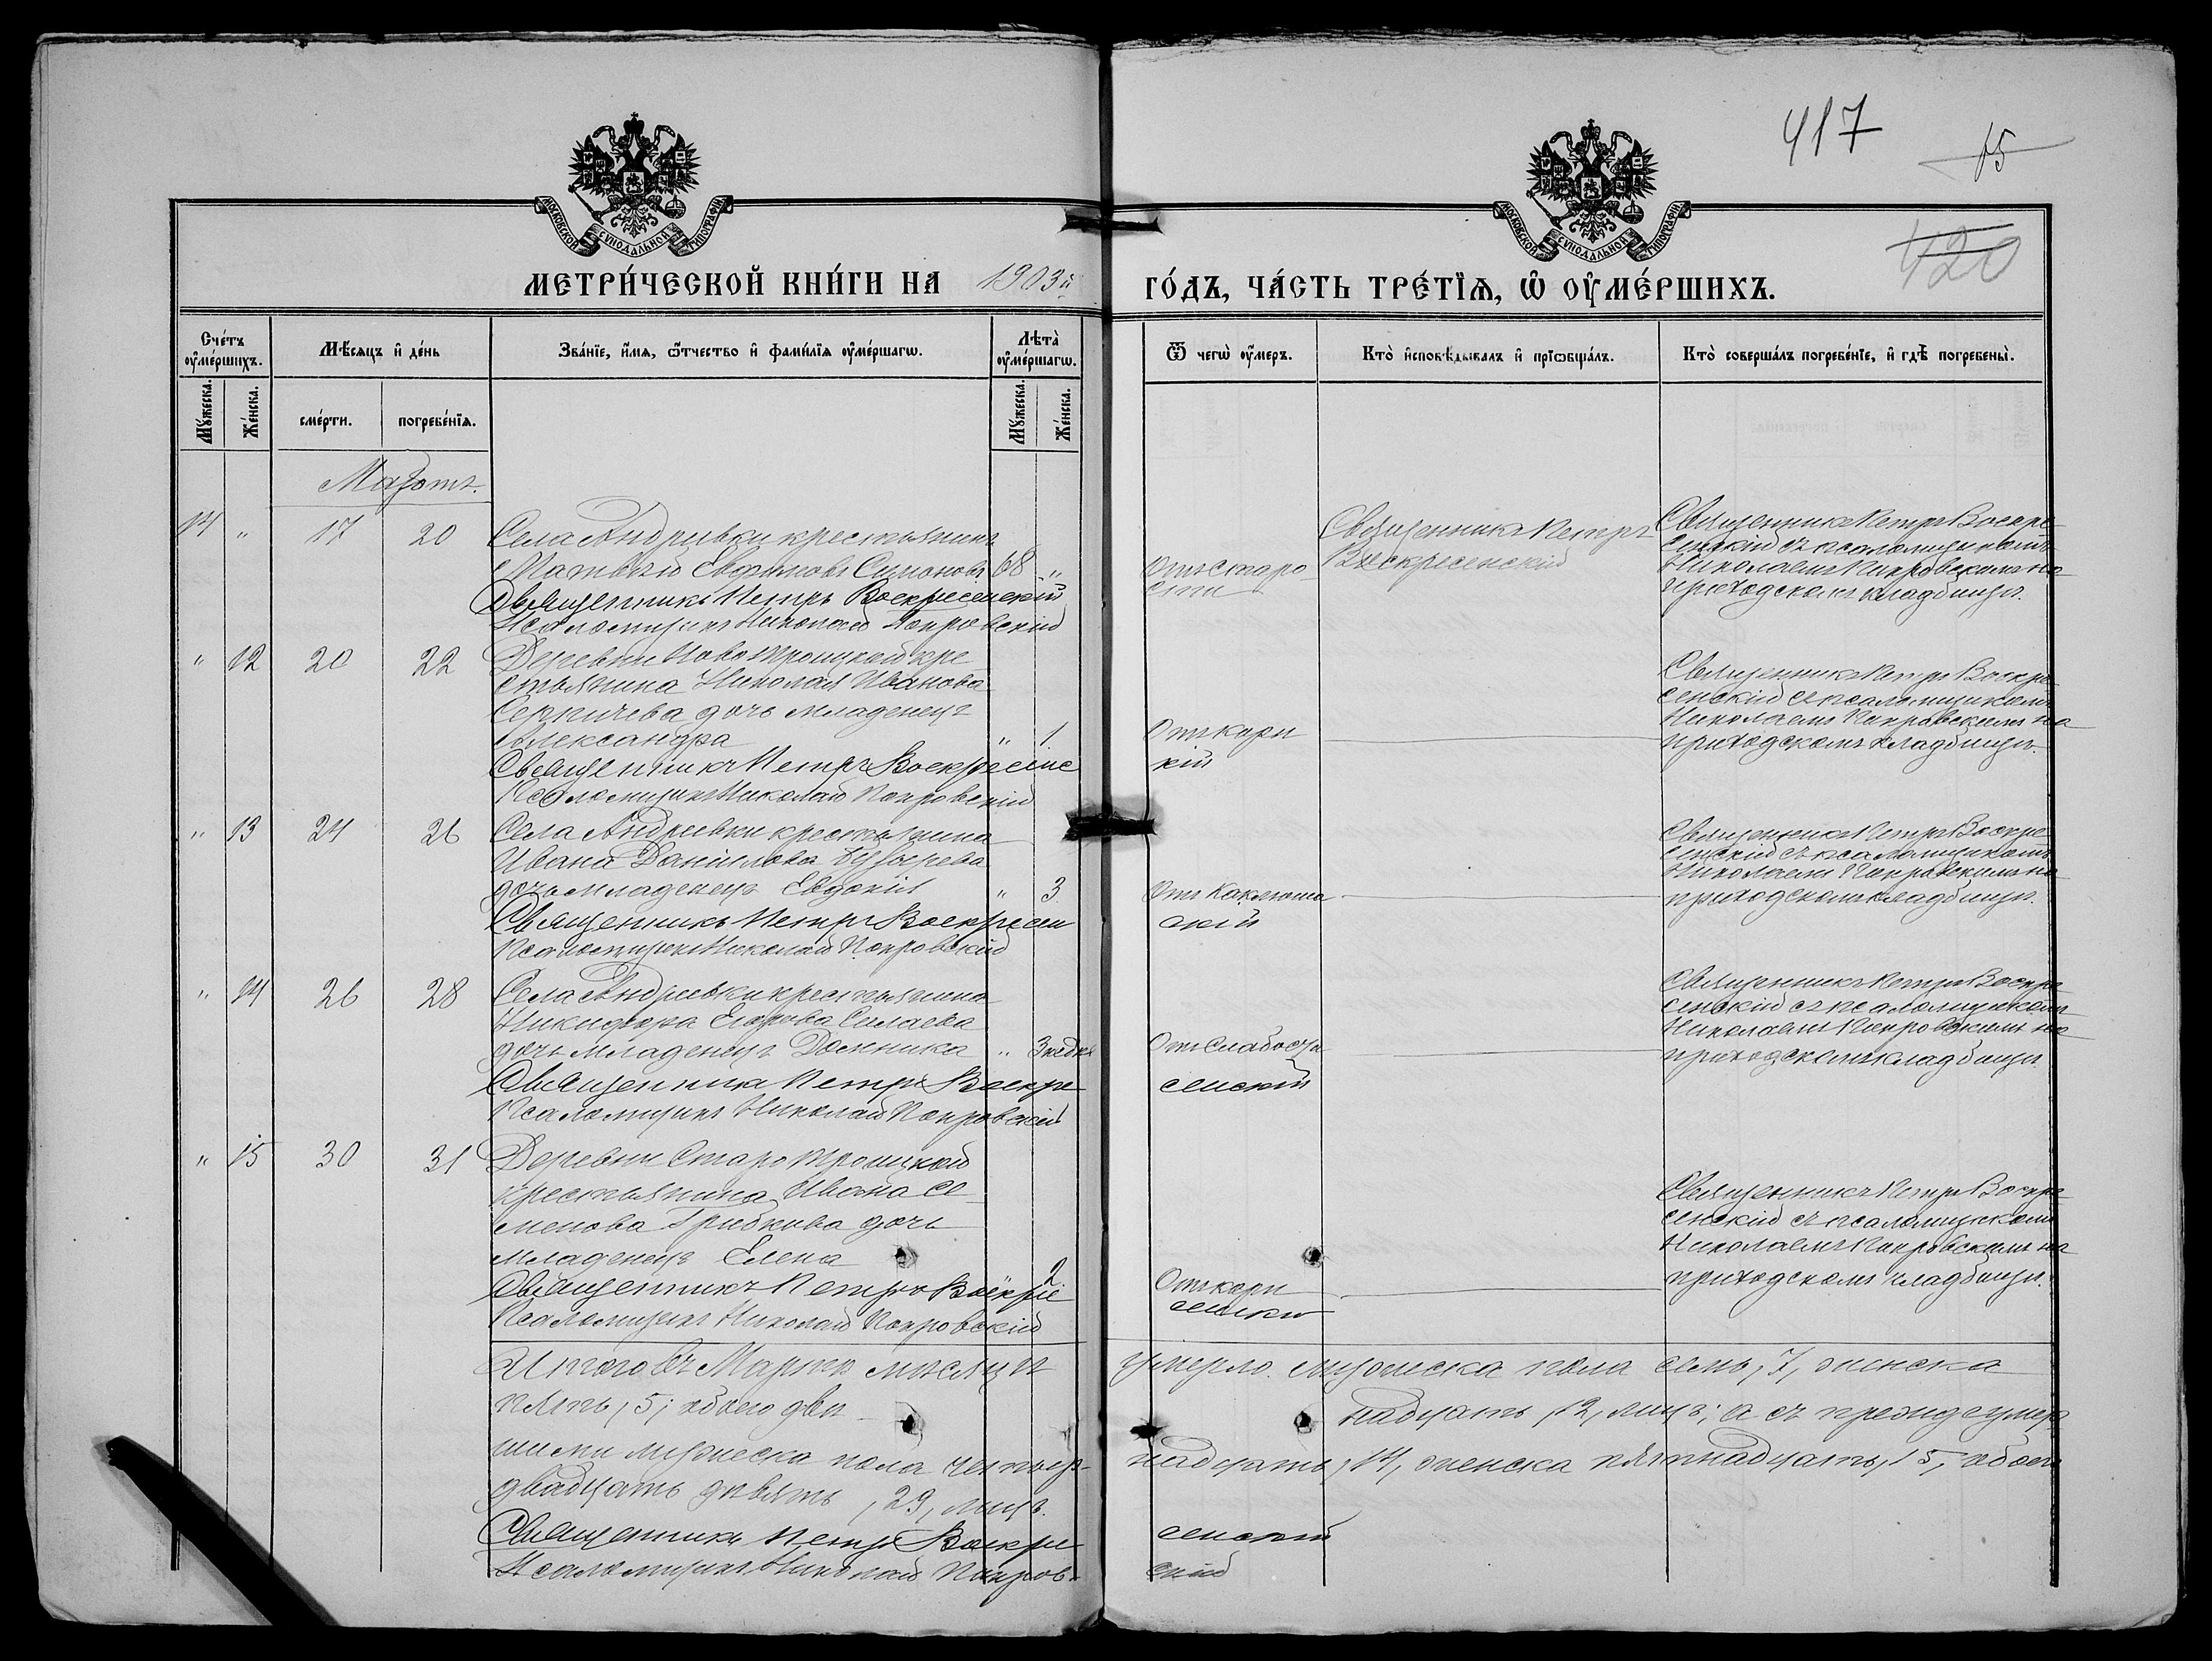 417
15
420
МОСКОВСКОЙ СУНОДАЛЬНОЙ ТИПОГРАФІИ
МОСКОВСКОЙ СУНОДАЛЬНОЙ ТИПОГРАФІИ
МЕТРИ́ЧЕСКОЙ КНИ́ГИ НА 1903й ГО́ДЪ, ЧА́СТЬ ТРЕ́ТІѦ, Ѡ ОУМЕ́РШИХЪ.
Сче́тъ оуме́ршихъ.
Мѣ́сяцъ и де́нь
Зва́нїе, и́мѧ, ѻ́тчество и фами́лїѧ оуме́ршагѡ.
Лѣ́та оуме́ршагѡ.
Ѿ чегѡ̀ оу́меръ.
Кто̀ и҆сповѣ́дывалъ и прїѡбща́лъ.
Кто̀ соверша́лъ погребе́нїе, и гдѣ̀ погребены̀.
Мꙋ́жеска.
Же́нска.
сме́рти.
погребе́нїѧ.
Мꙋ́жеска.
Же́нска.
Мартъ.
14 " 17 20 Села Андреевки крестьянинъ
Матвѣй Евфимовъ Симоновъ 68 "
Священникъ Петръ Воскресенскій
Псаломщикъ Николай Покровскій
Отъ старо
сти
Священникъ Петръ
Воскресенскій
Священникъ Петръ Воскре
сенскій съ псаломщикомъ
Николаемъ Покровскимъ на
приходскомъ кладбищѣ.
" 12 20 22 Деревни Ново Троицкой кре
стьянина Николая Иванова
Серпичева дочь младенецъ
Александра " 1.
Священникъ Петръ Воскресенс
Псаломщикъ Николай Покровскій
Отъ кори
кій
Священникъ Петръ Воскре
сенскій съ псаломщикомъ
Николаемъ Покровскимъ на
приходскомъ кладбищѣ.
" 13 24 26 Села Андреевки крестьянина
Ивана Даніилова
дочь младенецъ Евдокія " 3
Священникъ Петръ Воскресен
Псаломщикъ Николай Покровскій
Отъ коклюша
скій
Священникъ Петръ Воскре
сенскій съ псаломщикомъ
Николаемъ Покровскимъ на
приходскомъ кладбищѣ.
" 14 26 28 Села Андреевки крестьянина
Никифора Егорова Силаева
дочь младенецъ Домника " 3 недѣл
Священникъ Петръ Воскре
Псаломщикъ Николай Покровскій
Отъ слабости
сенскій
Священникъ Петръ Воскре
сенскій съ псаломщикомъ
Николаемъ Покровскимъ на
приходскомъ кладбищѣ.
" 15 30 31 Деревни Старо Троицкой
крестьянина Ивана Се
менова Грибкова дочь
младенецъ Елена 2.
Священникъ Петръ Воскре
Псаломщикъ Николай Покровскій
Отъ кори
сенскій
Священникъ Петръ Воскре
сенскій съ псаломщикомъ
Николаемъ Покровскимъ на
приходскомъ кладбищѣ.
Итого въ Мартѣ мѣсяцѣ умерло мужеска пола семь, 7, женска
пять, 5; обоего двѣ надцать, 12, лицъ; а съ прежде умер
шими мужеска пола четыр- надцать, 14, женска пятнадцать, 15, обоего
двадцать девять, 29, лицъ.
Священникъ Петръ Воскре сенскій
Псаломщикъ Николай Покров- скій